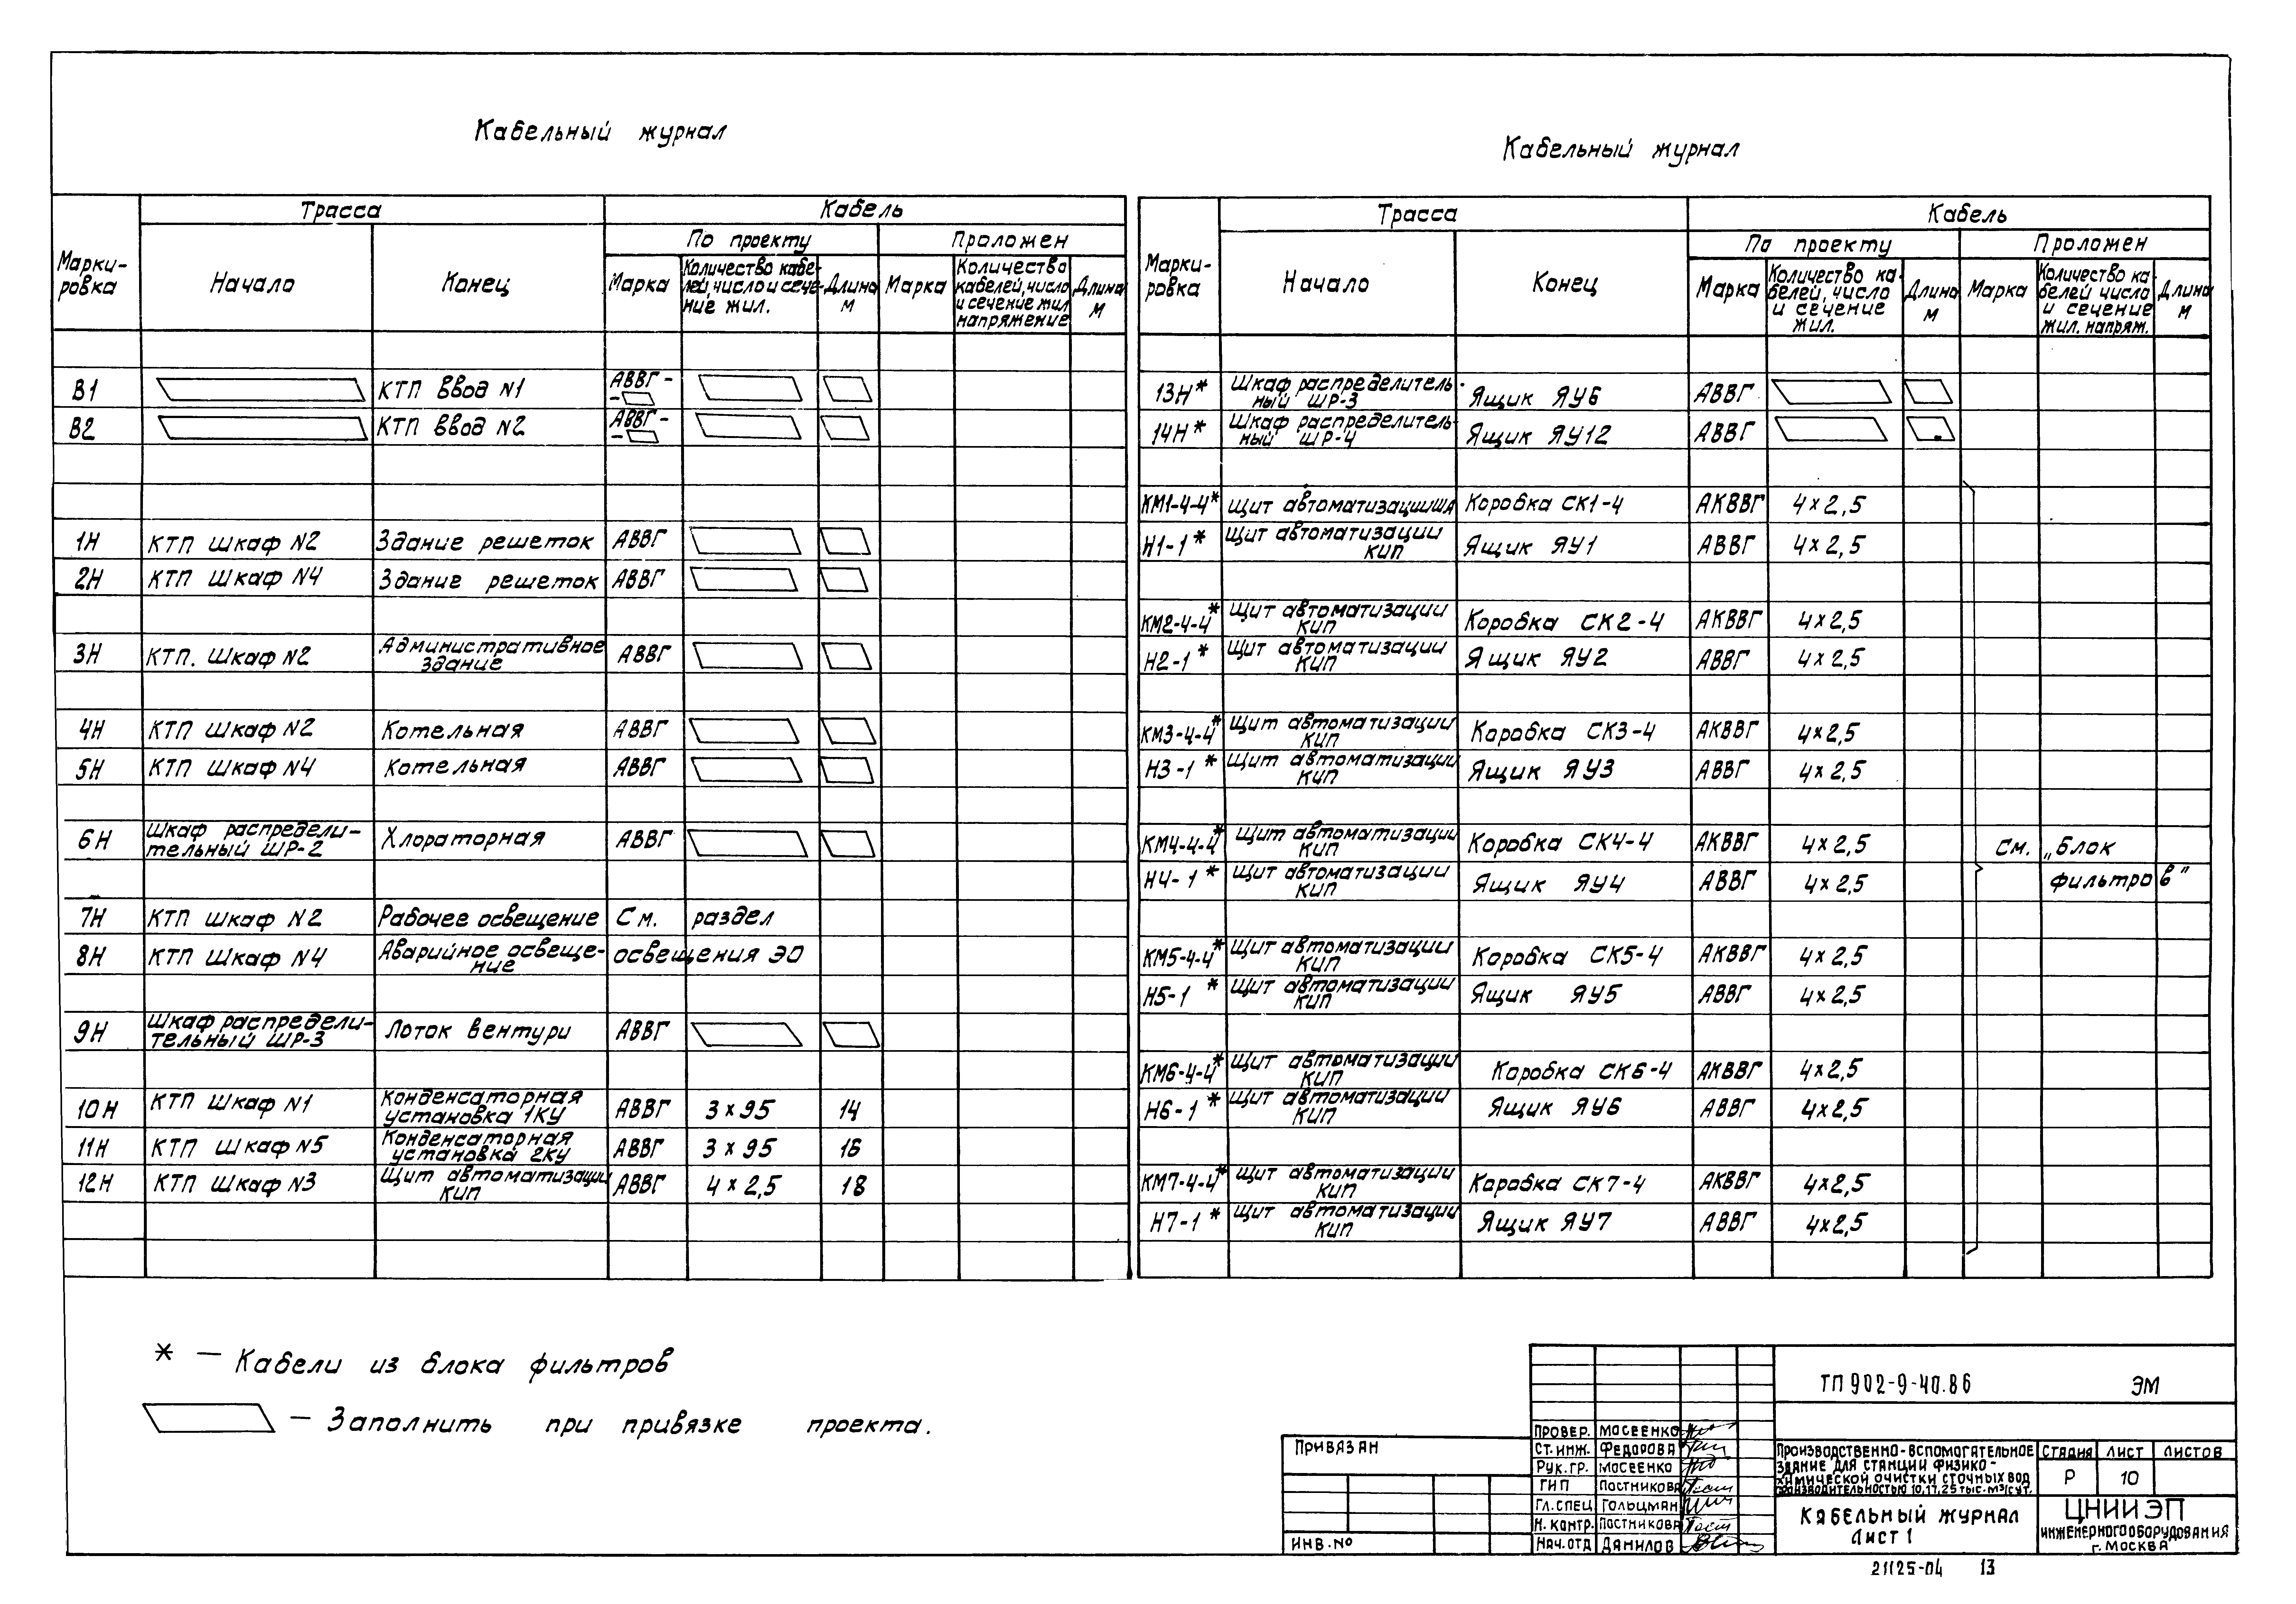 Кабельный журнал
Марки-
ровка
Трасса
Кабель
Начало
Конец
По проекту
Проложен
Марка
Количество кабе-
лей, число и сече-
ние жил.
Длина
м
Марка
Количество
кабелей, число
и сечение жил
напряжение
Длина
м
В1 КТП Ввод N1 АВВГ-
В2 КТП Ввод N2 АВВГ-
1Н КТП шкаф N2 Здание решеток АВВГ
2Н КТП шкаф N4 Здание решеток АВВГ
3Н КТП. шкаф N2 Административное
здание АВВГ
4Н КТП шкаф N2 Котельная АВВГ
5Н КТП шкаф N4 Котельная АВВГ
6Н Шкаф распредели-
тельный ШР-2 Хлораторная АВВГ
7Н КТП шкаф N2 Рабочее освещение См. раздел
8Н КТП шкаф N4 Аварийное освеще-
ние освещения ЭО
9Н Шкаф распредели-
тельный ШР-3 Лоток Вентури АВВГ
10Н КТП шкаф N1 Конденсаторная
установка 1КУ АВВГ 3×95 14
11Н КТП шкаф N5 Конденсаторная
установка 2КУ АВВГ 3×95 16
12Н КТП шкаф N3 Щит автоматизации
КИП АВВГ 4×2,5 18
Кабельный журнал
Марки-
ровка
Трасса
Кабель
Начало
Конец
По проекту
Проложен
Марка
Количество ка-
белей, число
и сечение
жил.
Длина
м
Марка
Количество ка-
белей число
и сечение
жил. напряж.
Длина
м
13Н* Шкаф распределитель-
ный ШР-3 Ящик ЯУ6 АВВГ
14Н* Шкаф распределитель-
ный ШР-4 Ящик ЯУ12 АВВГ
КМ1-4-4* Щит автоматизации Коробка СК1-4 АКВВГ 4×2,5
Н1-1* Щит автоматизации
КИП Ящик ЯУ1 АВВГ 4×2,5
КМ2-4-4* Щит автоматизации
КИП Коробка СК2-4 АКВВГ 4×2,5
Н2-1* Щит автоматизации
КИП Ящик ЯУ2 АВВГ 4×2,5
КМ3-4-4* Щит автоматизации
КИП Коробка СК3-4 АКВВГ 4×2,5
Н3-1* Щит автоматизации
КИП Ящик ЯУ3 АВВГ 4×2,5
КМ4-4-4* Щит автоматизации
КИП Коробка СК4-4 АКВВГ 4×2,5 См. „Блок
Н4-1* Щит автоматизации
КИП Ящик ЯУ4 АВВГ 4×2,5 фильтров"
КМ5-4-4* Щит автоматизации
КИП Коробка СК5-4 АКВВГ 4×2,5
Н5-1* Щит автоматизации
КИП Ящик ЯУ5 АВВГ 4×2,5
КМ6-4-4* Щит автоматизации
КИП Коробка СК6-4 АКВВГ 4×2,5
Н6-1* Щит автоматизации
КИП Ящик ЯУ6 АВВГ 4×2,5
КМ7-4-4* Щит автоматизации
КИП Коробка СК7-4 АКВВГ 4×2,5
Н7-1* Щит автоматизации
КИП Ящик ЯУ7 АВВГ 4×2,5
* — Кабели из блока фильтров
— Заполнить при привязке проекта.
Привязан
ИНВ.No
Провер. Мосеенко
Ст.инж. Федорова
Рук.гр. Мосеенко
ГИП Постникова
Гл.спец Гольцман
Н.контр. Постникова
Нач.отд Данилов
ТП 902-9-40.86 ЭМ
Производственно-вспомогательное
здание для станции физико-
химической очистки сточных вод
производительностью 10,17,25 тыс.м3/сут.
Стадия Лист Листов
Р 10
Кабельный журнал
Лист 1
ЦНИИЭП
инженерного оборудования
г. Москва
21125-04 13